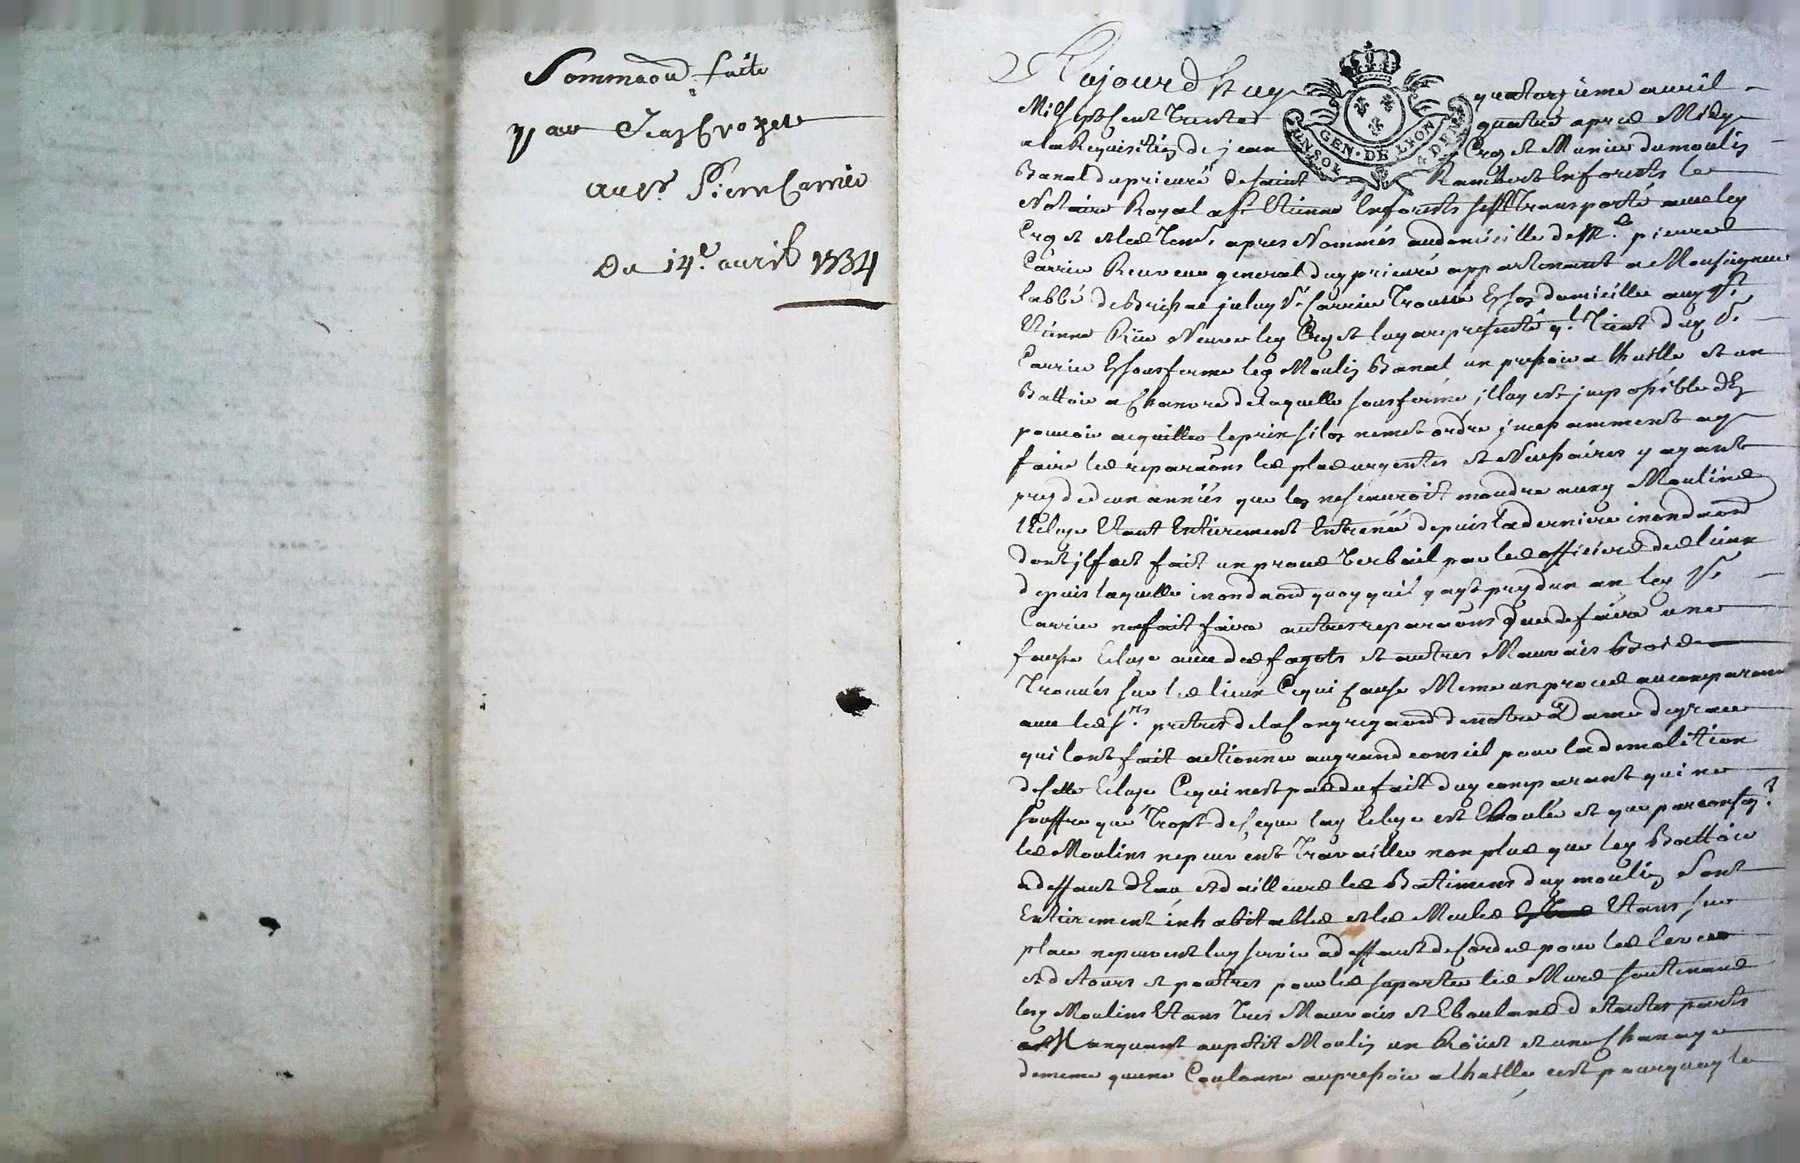 Sommaon faite
par Jean Crozet
au Sr. Pierre Carrier
Du 14e. avril 1734
Aujourdhuy quatorzieme avril
Mil sept cent Trente quatre apres Midy
a la Requisition de jean Crozet Munier du moulin
Banal du prieuré de saint Rambert En forests le
Notaire Royal a st Etienne En forests sest Transporté avec led
Crozet et les Tem. apres Nommés au domicille de Me. pierre
Carrier Receveur general dud prieuré appartenant a Monseigneur
labbé de Brissac
Etienne Rue Neuve led Crozet luy a representé ql. Tient dud Sr.
Carrier En sousferme led Moulin Banal un pressoir a lhuille et un
Battoir a Chanvre de laquelle sousferme il luy est impossible den
pouvoir acquitter le prix si lon nemet ordre incessamment a y
faire les reparaons les plus urgentes et Necessaires y ayant
pres de deux années que lon ne scauroit moudre aud Moulins
lEcluse Etant Entierement Entrenée depuis la derniere inondaon
dont il fut fait un proces Verbail par les officiers des lieux
depuis laquelle inondaon quoy quil y ayt pres dun an led Sr.
Carrier na fait faire autres reparaons que de faire une
fausse Ecluse avec des fagots et autres Mauvais Bois
Trouvés sur les lieux Ce qui Cause Meme un proces au comparant
avec les Srs. pretres de la Congregaon de notre Dame de grace
qui lont fait actionner au grand conseil pour la demolition
de cette Ecluse Ce qui nest pas du fait dud comparant qui ne
souffre que Trop de ce que lad Ecluse est Eboulée et que par conseqt.
les Moulins ne peuvent Travailler non plus que led Battoir
a deffaut dEau et dailleurs les Batimens dud moulin Sont
Entierement inhabitables et les Meules Etans sur
place ne peuvent luy servir a deffaut de Cordes pour les lever
et de tours et poutres pour les suporter les Murs soutenans
lesd Moulins Etans Tres Mauvais et Eboulans de toutes parts
Manquant au petit Moulin un Rouet et une
de meme quune Coulonne au pressoir a lhuille cest pourquoy le
GEN. DE LYON
UN SOL 4 DEN